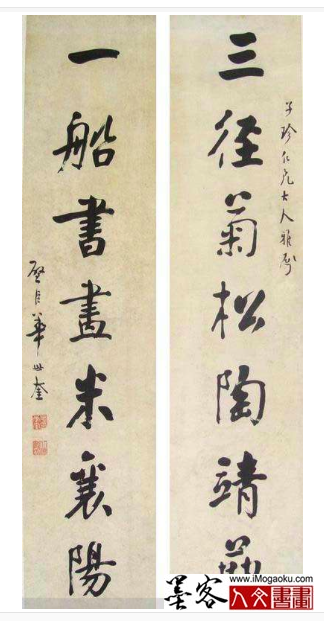 三徑菊松陶靖節
子珍仁兄大人雅屬
一船書畫米襄陽
華世奎
www.iMogaoku.com
墨客
人文書畫